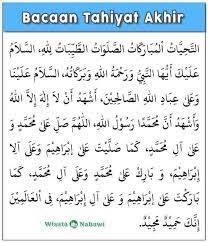 Bacaan Tahiyat Akhir
التَّحِيَّاتُ الْمُبَارَكَاتُ الصَّلَوَاتُ الطَّيِّبَاتُ لِلّٰهِ، السَّلَامُ
عَلَيْكَ أَيُّهَا النَّبِيُّ وَرَحْمَةُ اللّٰهِ وَبَرَكَاتُهُ، السَّلَامُ عَلَيْنَا
وَعَلَى عِبَادِ اللّٰهِ الصَّالِحِيْنَ، أَشْهَدُ أَنْ لَا إِلٰهَ إِلَّا اللّٰهُ
وَأَشْهَدُ أَنَّ مُحَمَّدًا رَسُوْلُ اللّٰهِ، اللّٰهُمَّ صَلِّ عَلَى مُحَمَّدٍ وَ
عَلَى آلِ مُحَمَّدٍ، كَمَا صَلَّيْتَ عَلَى إِبْرَاهِيْمَ وَعَلَى آلِ
إِبْرَاهِيْمَ، وَ بَارِكْ عَلَى مُحَمَّدٍ وَ عَلَى آلِ مُحَمَّدٍ، كَمَا
بَارَكْتَ عَلَى إِبْرَاهِيْمَ وَ عَلَى آلِ إِبْرَاهِيْمَ، فِى الْعَالَمِيْنَ
إِنَّكَ حَمِيْدٌ مَجِيْدٌ.
Wisata Nabawi